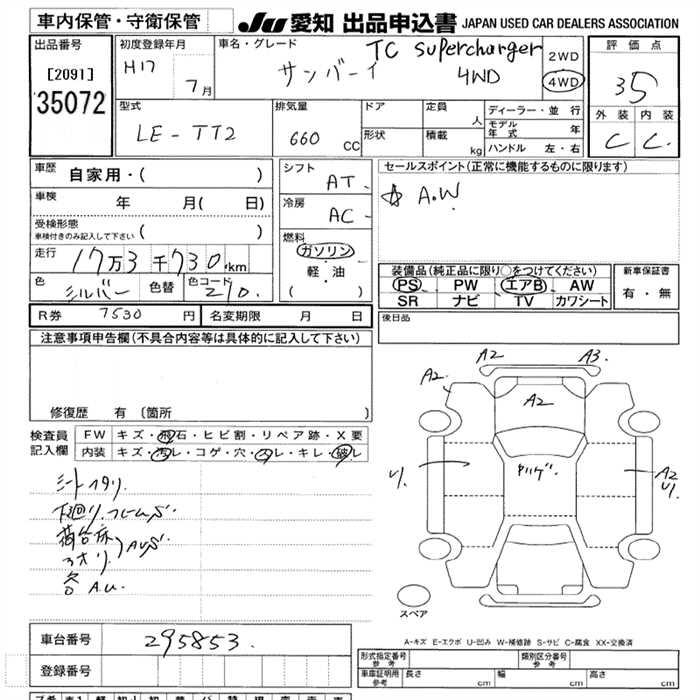 車内保管・守衛保管
JU 愛知 出品申込書 JAPAN USED CAR DEALERS ASSOCIATION
出品番号
[2091]
35072
初度登録年月
H17 7月
車名・グレード
サンバー TC Supercharger
4WD
2WD
4WD
評価点
35
外装 内装
C C
型式
LE-TT2
排気量
660 cc
ドア
形状
定員 人
積載 kg
ディーラー・並行
モデル年式 年
ハンドル 左・右
車歴
自家用・( )
車検
年 月( 日)
受検形態
車検付きのみ記入して下さい ( )
走行
17万3千730.km
色
シルバー
色替
色コード
210.
シフト
AT
冷房
AC
燃料
ガソリン
軽・油
( )
セールスポイント(正常に機能するものに限ります)
☆ A.W
装備品(純正品に限り○をつけてください)
PS PW エアB AW
SR ナビ TV カワシート
新車保証書
有・無
後日品
R券 7530 円 名変期限 月 日
注意事項申告欄(不具合内容等は具体的に記入して下さい)
修復歴 有 〔箇所 〕
検査員記入欄
FW キズ・飛石・ヒビ割・リペア跡・X要
内装 キズ・汚レ・コゲ・穴・スレ・キレ・破レ
シートヘタリ.
下廻り.フレームS
荷台床
アオリ. AUS
各A.U.
A2 A3.
A2.
A2
U.
A2
U.
スペア
A-キズ E-エクボ U-凹み W-補修跡 S-サビ C-腐食 XX-交換済
車台番号 295853.
登録番号
形式指定番号 参考
類別区分番号 参考
車庫証明用参考 長さ cm 幅 cm 高さ cm